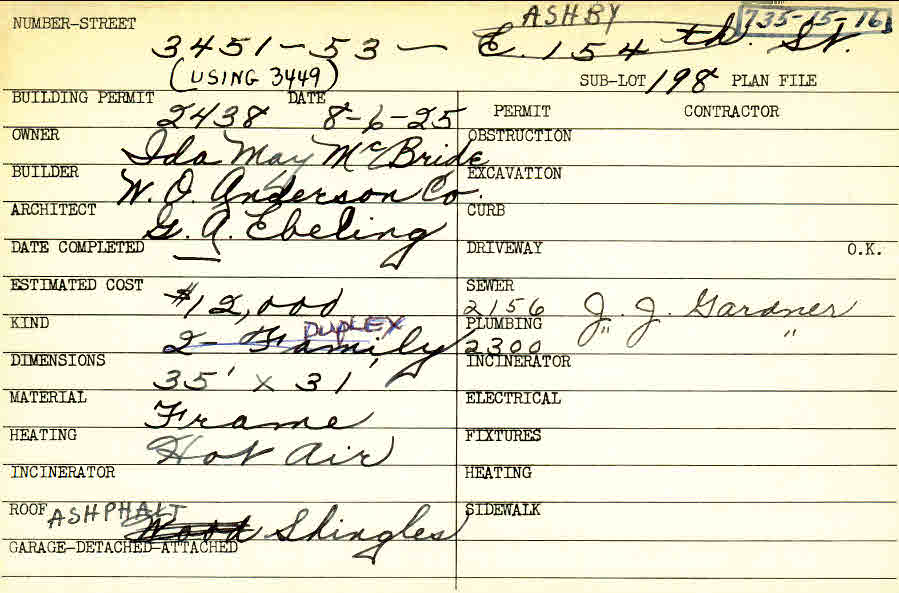 ASHBY 735-15-16
NUMBER-STREET 3451-53 - E. 154th. St.
(USING 3449) SUB-LOT 198 PLAN FILE
BUILDING PERMIT 2438 DATE 8-6-25 PERMIT CONTRACTOR
OWNER Ida May McBride OBSTRUCTION
BUILDER W. O. Anderson Co. EXCAVATION
ARCHITECT G. A. Ebeling CURB
DATE COMPLETED — DRIVEWAY O.K.
ESTIMATED COST $12,000 SEWER 2156 J. J. Gardner
KIND 2-Family DUPLEX PLUMBING 2300 " "
DIMENSIONS 35' x 31' INCINERATOR
MATERIAL Frame ELECTRICAL
HEATING Hot Air FIXTURES
INCINERATOR HEATING
ROOF ASHPHALT Wood Shingles SIDEWALK
GARAGE-DETACHED-ATTACHED